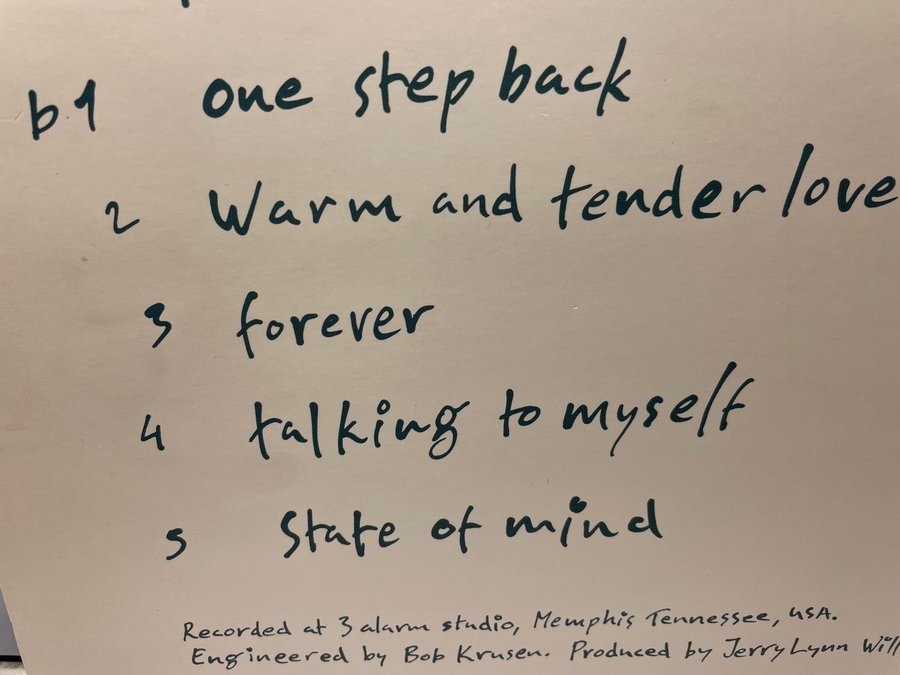 b1 one step back
2 Warm and tender love
3 forever
4 talking to myself
5 State of mind
Recorded at 3 alarm studio, Memphis Tennessee, USA.
Engineered by Bob Krusen. Produced by Jerry Lynn Will